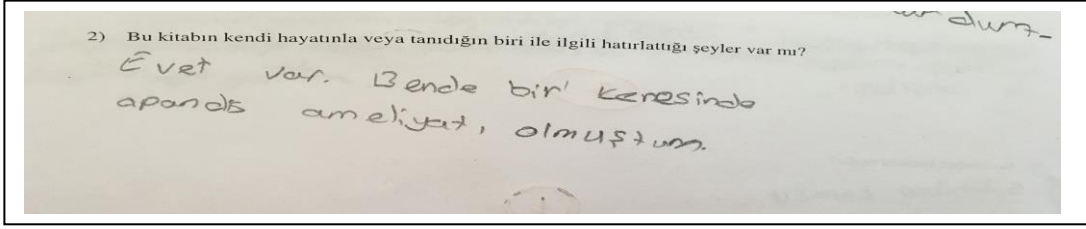 durm-
2) Bu kitabın kendi hayatınla veya tanıdığın biri ile ilgili hatırlattığı şeyler var mı?
Evet var. Bende bir keresinde
apandis ameliyatı, olmuştum.